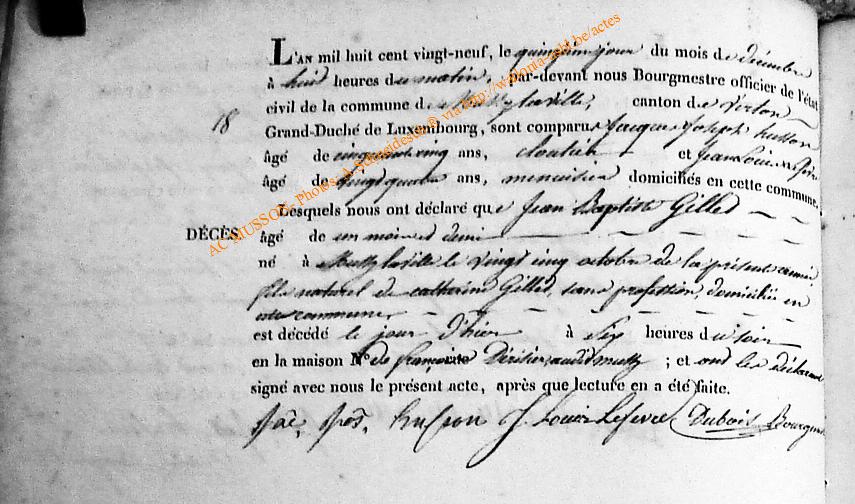 L'AN mil huit cent vingt-neuf, le quinzième jour du mois de décembre
à huit heures du matin, par-devant nous Bourgmestre officier de l'état
civil de la commune de Mussy la ville, canton de Virton
18
Grand-Duché de Luxembourg, sont comparus Jacques Joseph husson
âgé de cinquante cinq ans, cloutier et Jean Louis
âgé de vingt quatre ans, menuisier domiciliés en cette commune.
Lesquels nous ont déclaré que Jean Baptiste Gillet
DÉCÈS
âgé de un mois et demi
né à Mussy la ville le vingt cinq octobre de la présente année
fils naturel de catherine Gillet, sans profession, domiciliée en
cette commune
est décédé le jour d'hier à six heures du soir
en la maison N° de françois audit mussy ; et ont les déclarans
signé avec nous le présent acte, après que lecture en a été faite.
Jac, Jos, husson J. Louis Lefevre Dubois Bourgm
AC MUSSON- Photos : A.Schneidesch® via http://wallonia-asbl.be/actes